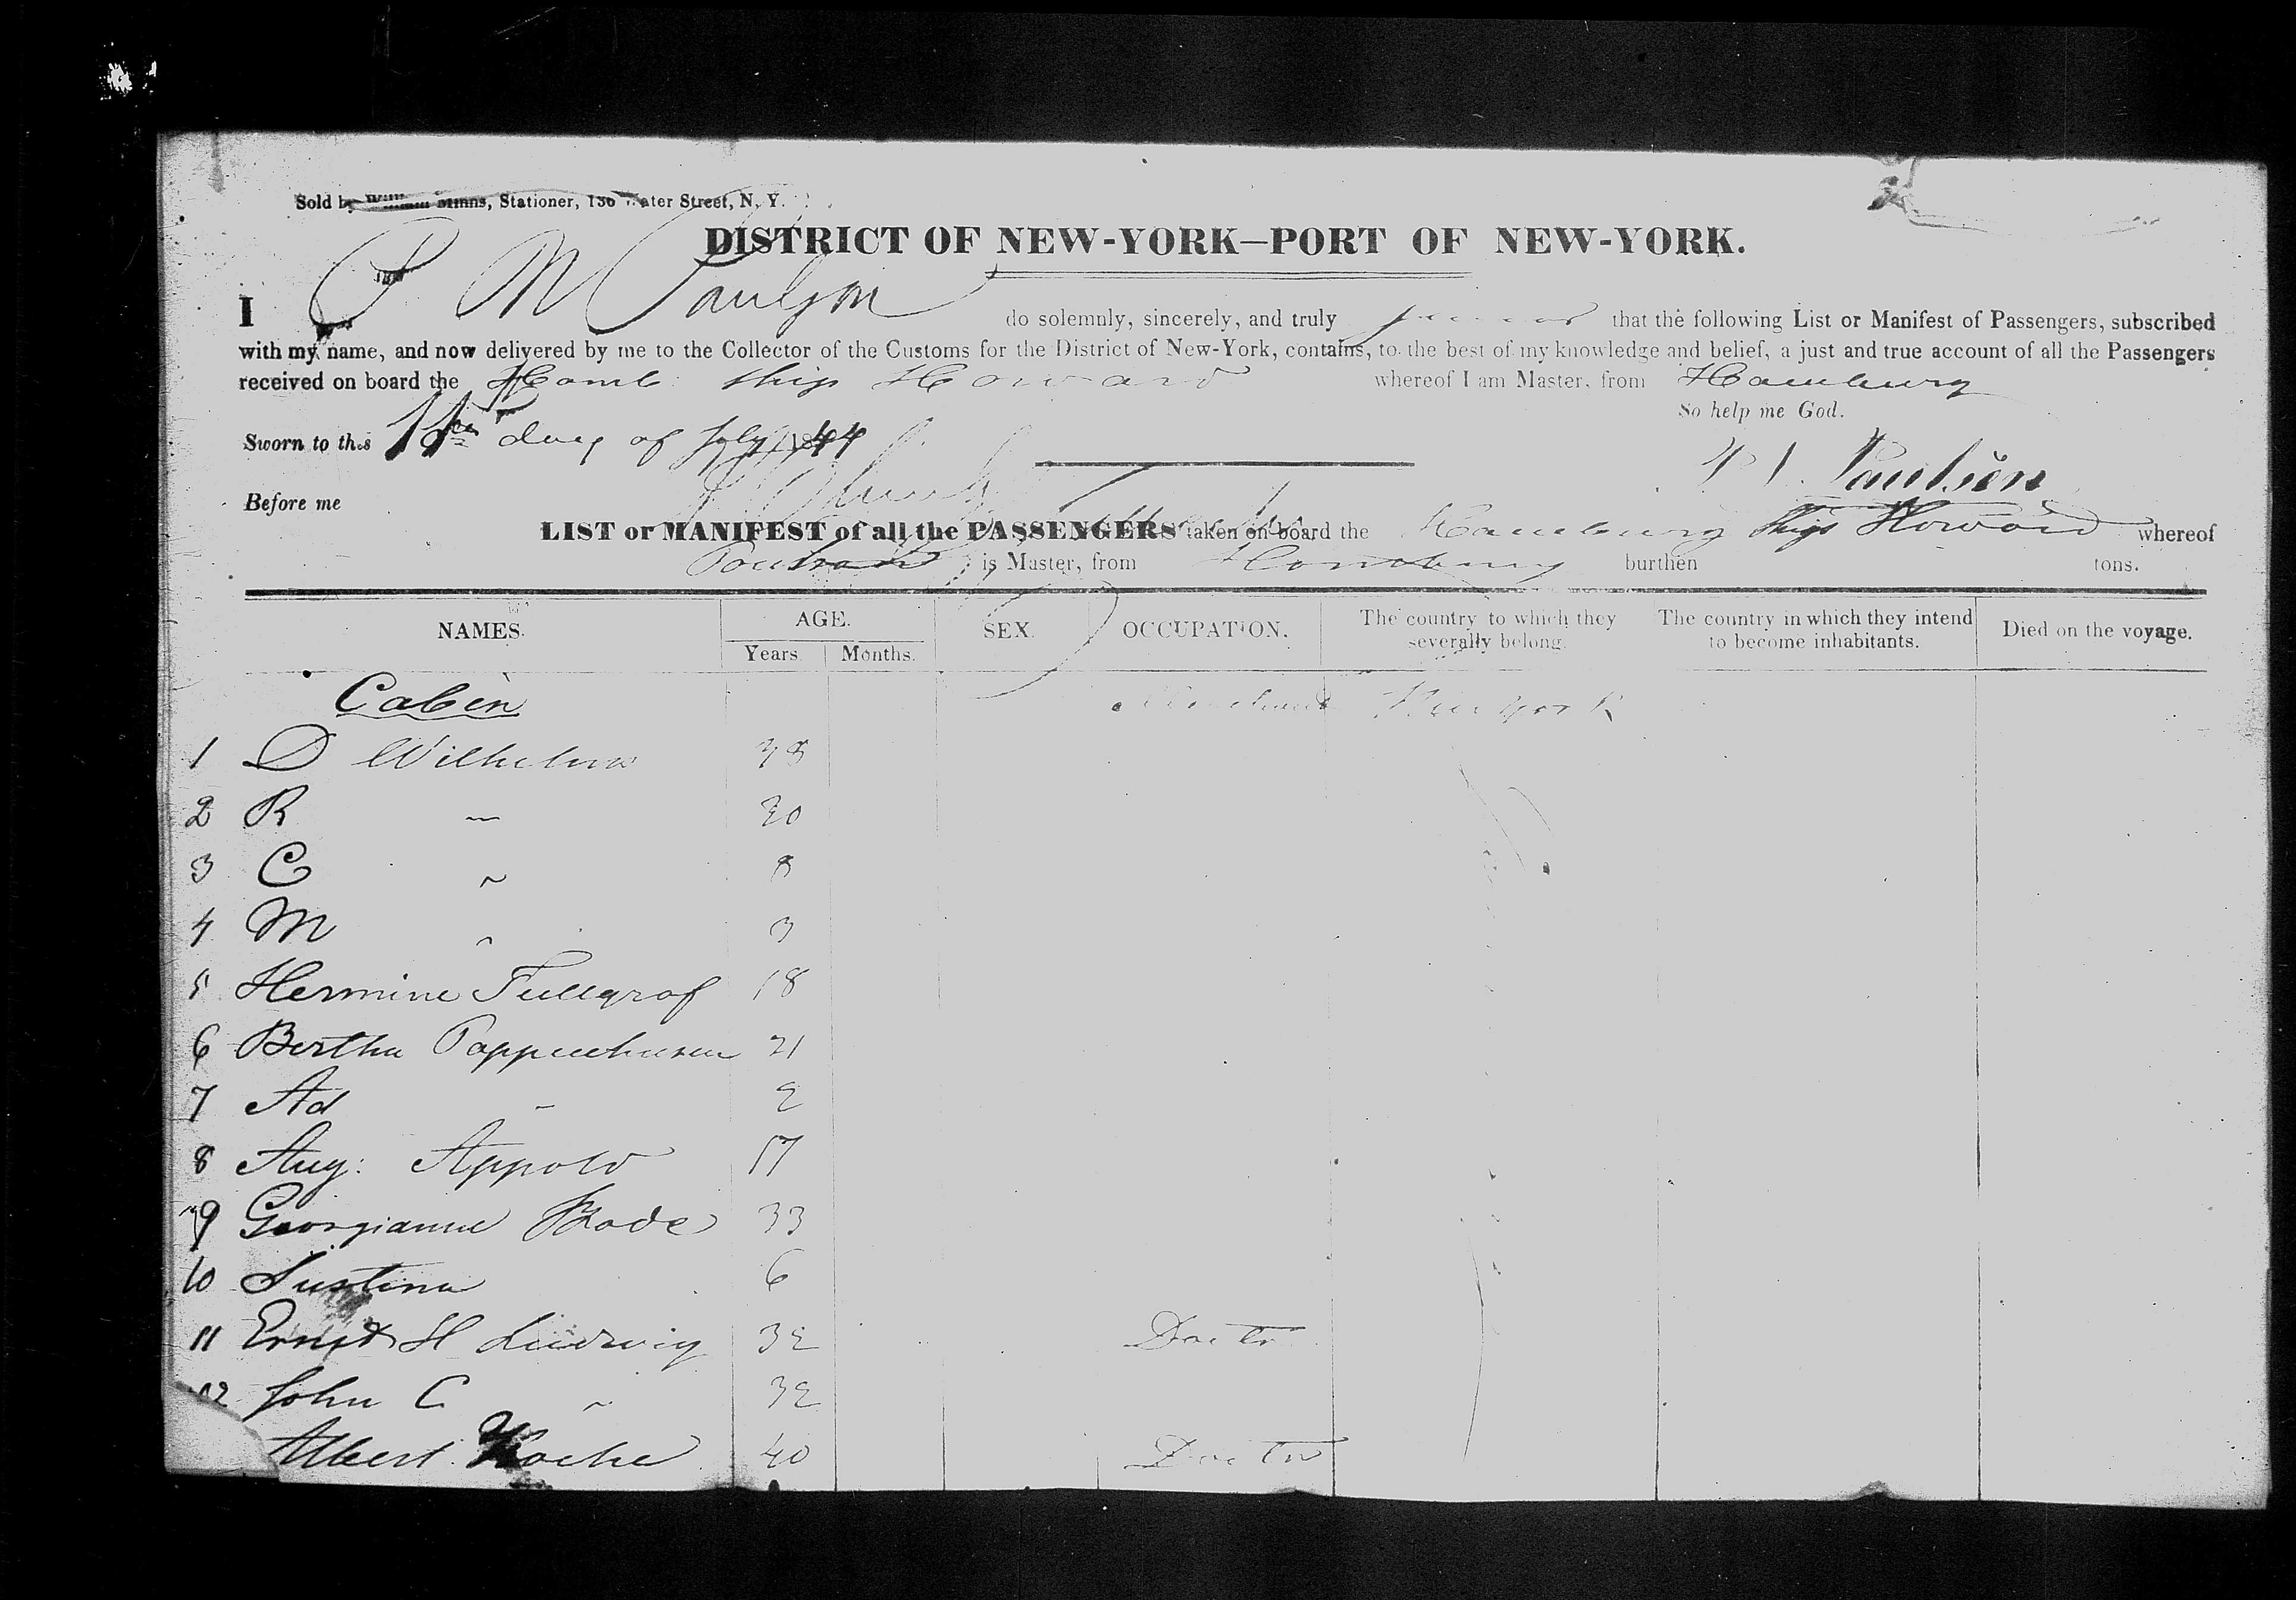 Sold by William Minns, Stationer, 136 Water Street, N. Y.
DISTRICT OF NEW-YORK—PORT OF NEW-YORK.
I P M Paulsen do solemnly, sincerely, and truly that the following List or Manifest of Passengers, subscribed
with my name, and now delivered by me to the Collector of the Customs for the District of New-York, contains, to the best of my knowledge and belief, a just and true account of all the Passengers
received on board the Hamb: Ship Howard whereof I am Master, from Hamburg
So help me God.
Sworn to this day of July 1844
Paulsen
Before me
LIST or MANIFEST of all the PASSENGERS taken on board the Hamburg Ship Howard whereof
Paulsen is Master, from Hamburg burthen tons.
NAMES. AGE. SEX. OCCUPATION. The country to which they severally belong. The country in which they intend to become inhabitants. Died on the voyage.
Years. Months.
Cabin Merchant New York
1 D Wilhelms 38
2 R ~ 30
3 C ~ 8
4 M ~ 3
5 Hermine Fullgraf 18
6 Bertha Poppenhusen 21
7 Ad - 2
8 Aug: Appold 17
9 Georgianne Bode 33
10 Justina 6
11 Ernst H Ludwig 32 Doctr
12 John C ~ 32
Albert Koche 40 Doctr